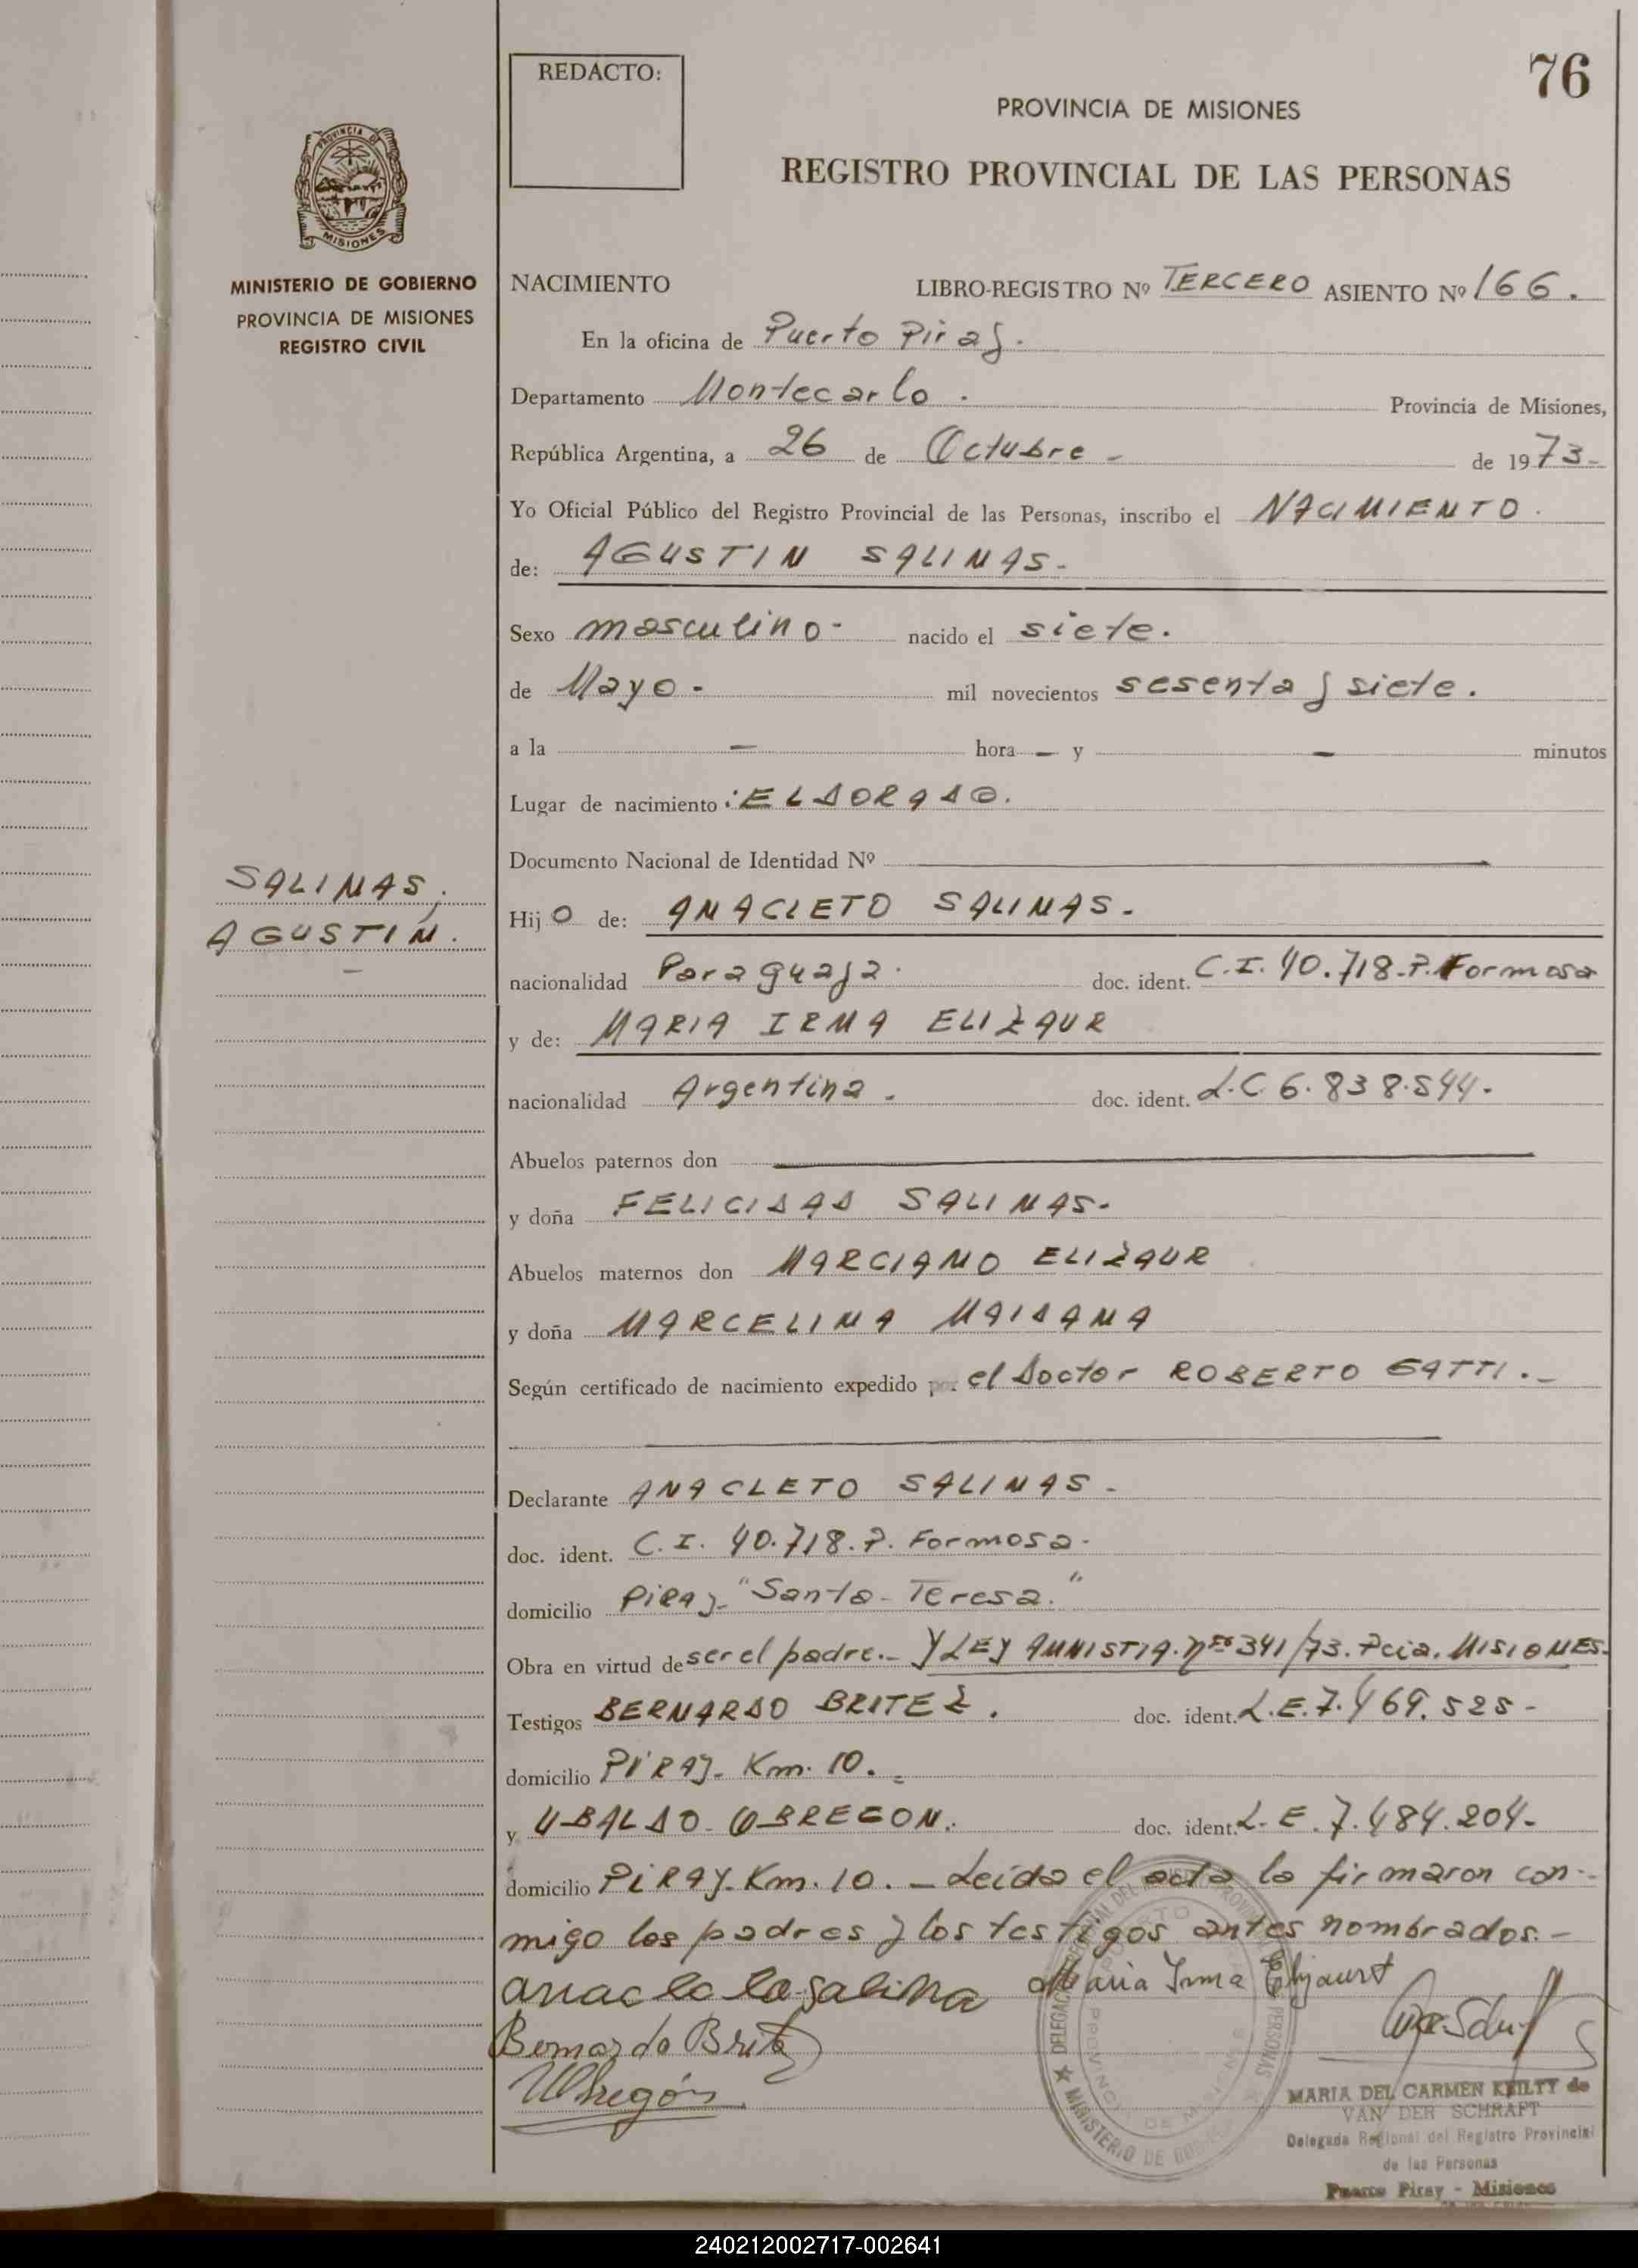 REDACTO:
76
PROVINCIA DE MISIONES
REGISTRO PROVINCIAL DE LAS PERSONAS
PROVINCIA DE
MISIONES
MINISTERIO DE GOBIERNO
PROVINCIA DE MISIONES
REGISTRO CIVIL
NACIMIENTO LIBRO-REGISTRO Nº TERCERO ASIENTO Nº 166.
En la oficina de Puerto Piray.
Departamento Montecarlo. Provincia de Misiones,
República Argentina, a 26 de Octubre - de 1973-
Yo Oficial Público del Registro Provincial de las Personas, inscribo el NACIMIENTO.
de: AGUSTIN SALINAS-
Sexo masculino- nacido el siete.
de Mayo- mil novecientos sesenta y siete.
a la — hora — y — minutos
Lugar de nacimiento: ELDORADO.
Documento Nacional de Identidad Nº
SALINAS,
AGUSTIN.
Hijo de: ANACLETO SALINAS-
nacionalidad Paraguaya. doc. ident. C.I. 40.718.P. Formosa
y de: MARIA IRMA ELIZAUR
nacionalidad Argentina. doc. ident. L.C 6.838.544.
Abuelos paternos don
y doña FELICIDAD SALINAS-
Abuelos maternos don MARCIANO ELIZAUR
y doña MARCELINA MAIDANA
Según certificado de nacimiento expedido por el Doctor ROBERTO GATTI.-
Declarante ANACLETO SALINAS-
doc. ident. C.I. 40.718.P. Formosa-
domicilio Piray- "Santa-Teresa."
Obra en virtud de ser el padre.- Y LEY AMNISTIA. nro 341/73. Pcia. MISIONES-
Testigos BERNARDO BRITEZ. doc. ident. L.E.7.469.525-
domicilio PIRAY- Km. 10.=
y UBALDO-OBREGON. doc. ident. L.E.7.484.204-
domicilio PIRAY-Km. 10. - Leida el acta la firmaron con-
migo los padres y los testigos antes nombrados.-
anacleto salina Maria Irma Elizaurt
Bernardo Britez
UObregón
MARIA DEL CARMEN KEILTY de
VAN DER SCHRAFT
Delegada Regional del Registro Provincial
de las Personas
Puerto Piray - Misiones
240212002717-002641